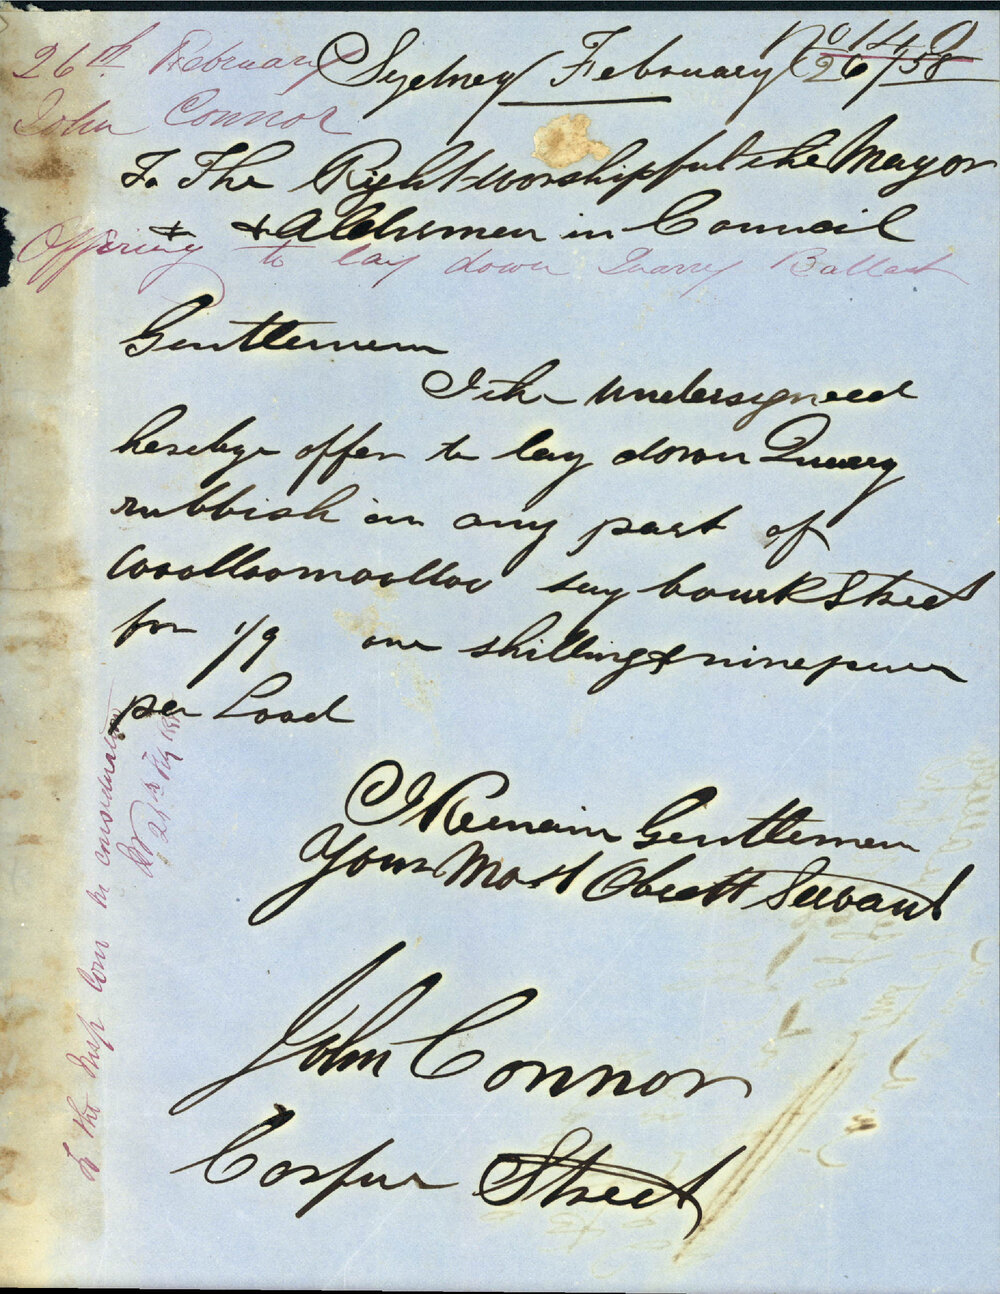 No 140
26th February
Sydney February 26/58
John Connor
To The Right worshipful the Mayor
& Aldermen in Council
Offering to lay down Quarry Ballast
Gentlemen
I the undersigned
hereby offer to lay down Quarry
rubbish in any part of
Woolloomoolloo say bourk Street
for 1/9 one shilling & ninepence
per Load
I Remain Gentlemen
Your Most Obedtt Servant
John Connor
Corfur Street
To the Imp Com for consideration